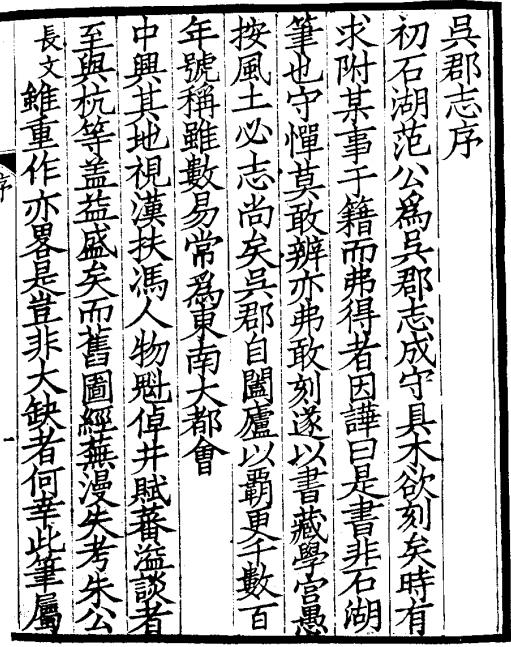 吳郡志序
初石湖范公爲吳郡志成守具木欲刻矣時有
求附某事于籍而弗得者因譁曰是書非石湖
筆也守憚莫敢辨亦弗敢刻遂以書藏學宮愚
按風土必志尚矣吳郡自闔廬以霸更千數百
年號稱雖數易常爲東南大都會
中興其地視漢扶馮人物魁倬井賦蕃溢談者
至與杭等盖益盛矣而舊圖經蕪漫失考朱公
長文雖重作亦畧是豈非大缺者何幸此筆屬
序